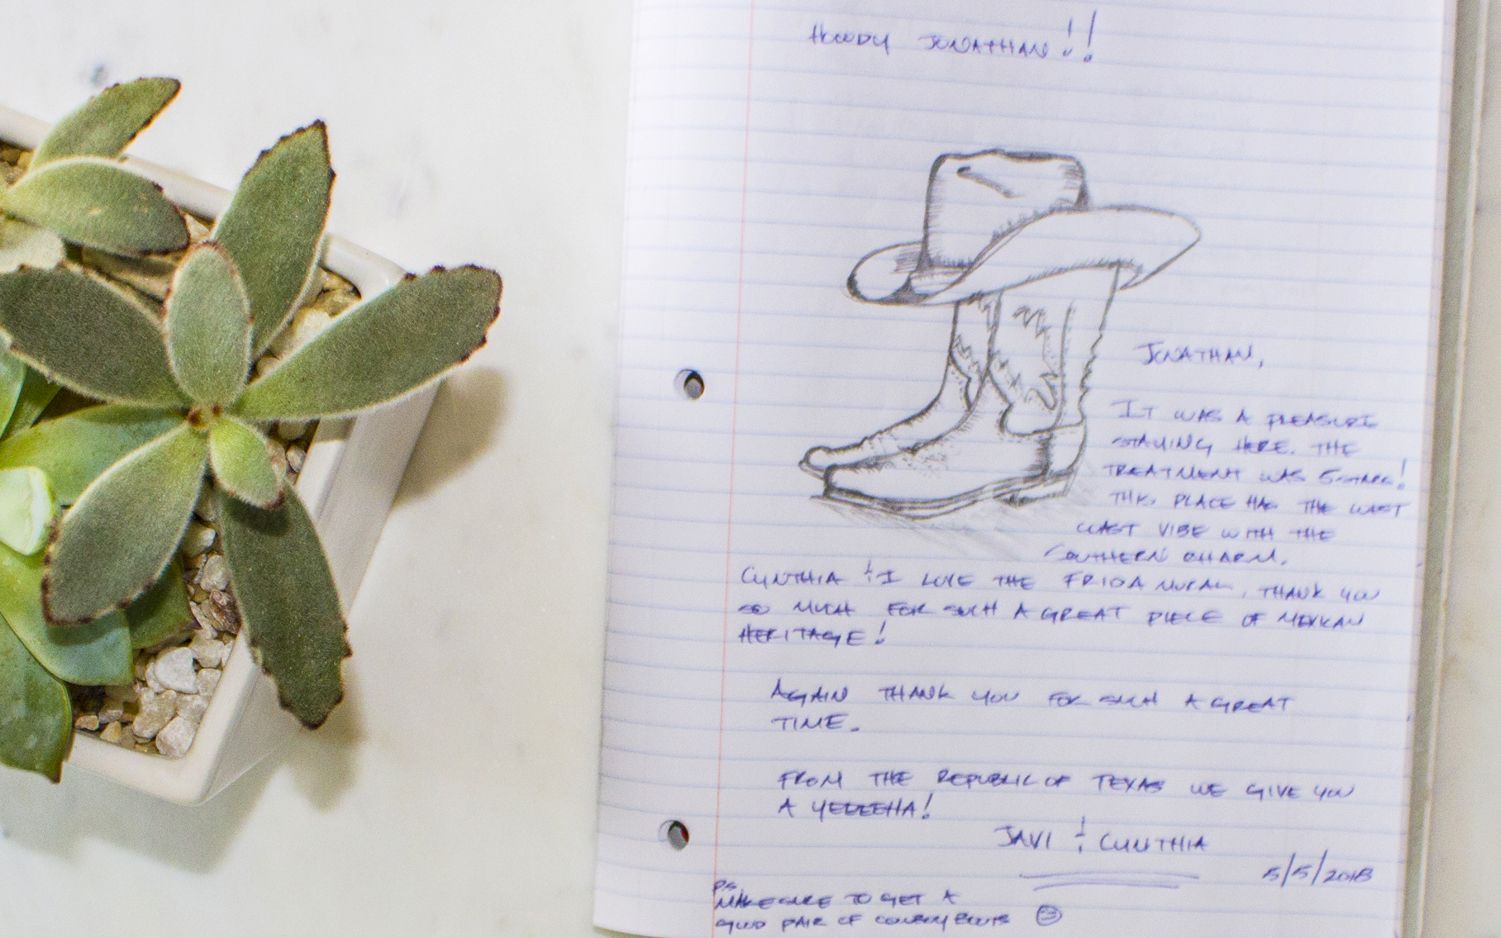 HOWDY JONATHAN!!
JONATHAN,
IT WAS A PLEASURE
STAYING HERE. THE
TREATMENT WAS 5-STARS!
THIS PLACE HAS THE WEST
COAST VIBE WITH THE
SOUTHERN CHARM.
CYNTHIA & I LOVE THE FRIDA MURAL, THANK YOU
SO MUCH FOR SUCH A GREAT PIECE OF MEXICAN
HERITAGE!
AGAIN THANK YOU FOR SUCH A GREAT
TIME.
FROM THE REPUBLIC OF TEXAS WE GIVE YOU
A YEEEEHA!
JAVI & CYNTHIA
5/5/2018
PS.
MAKE SURE TO GET A
GOOD PAIR OF COWBOY BOOTS